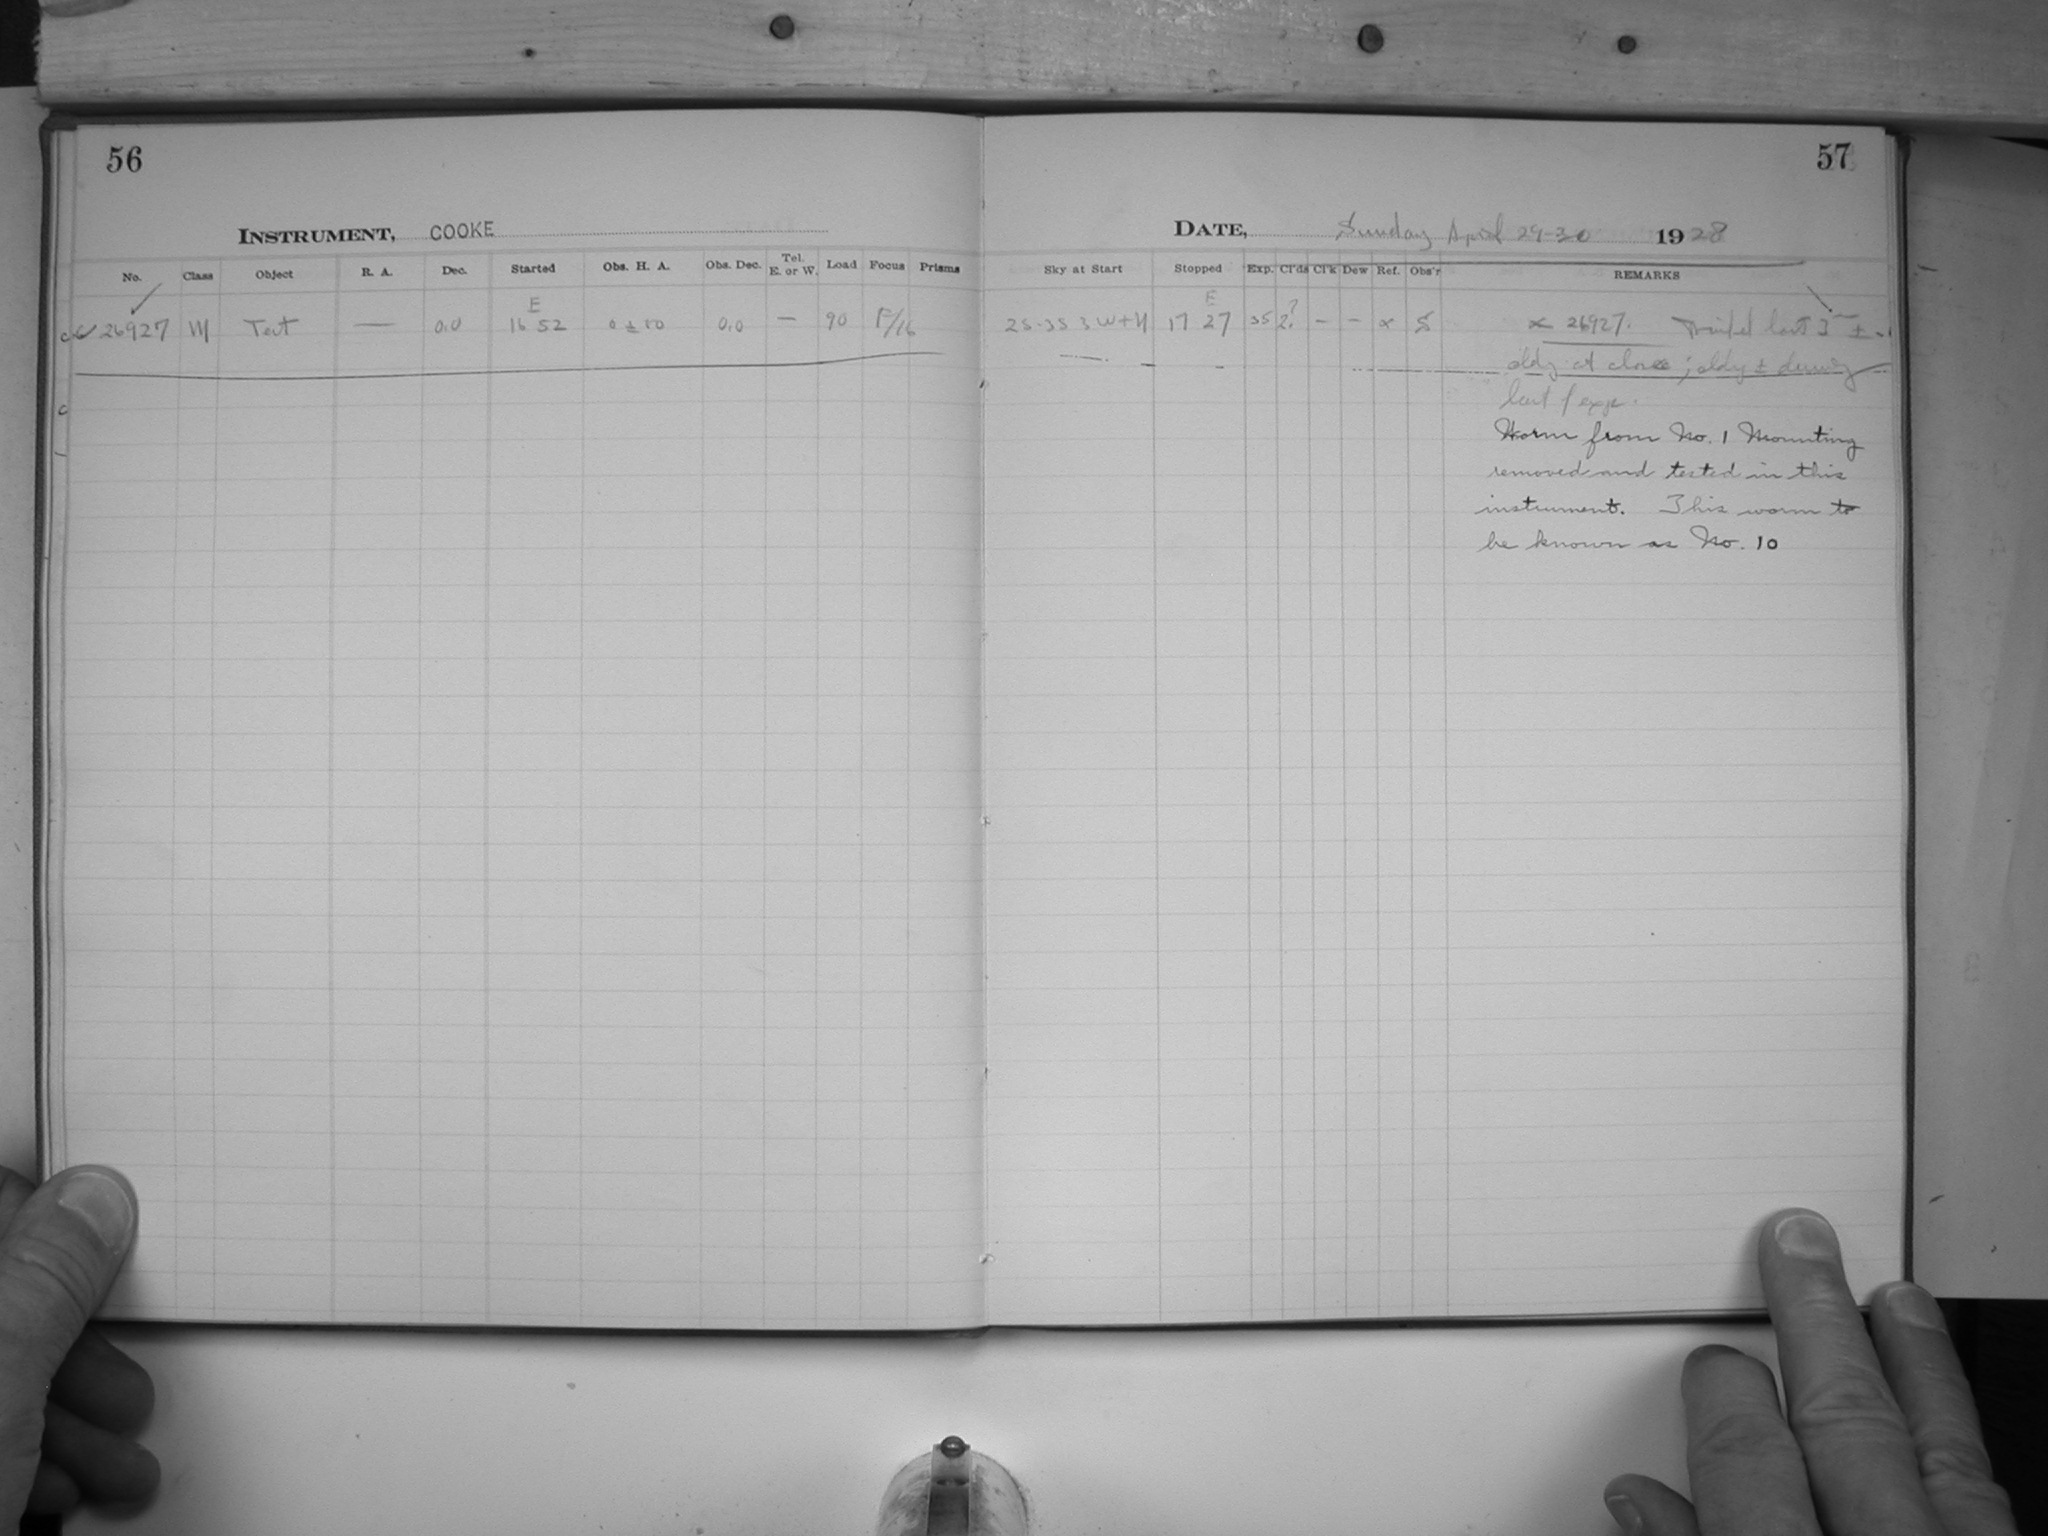 56
57
INSTRUMENT, COOKE
DATE, Sunday April 29-30 1928
No. Class Object R. A. Dec. Started Obs. H. A. Obs. Dec. Tel. E. or W. Load Focus Prisms
Sky at Start Stopped Exp. Cl'ds Cl'k Dew Ref. Obs'r REMARKS
E
E
26927 Test — 0.0 16 52 0 ± 10 0.0 — 90 F/16
17 27 35 2? — — x S x 26927. last 3 ±
cldy at close; cldy ± during
last / exp.
Worm from No. 1 Mounting
removed and tested in this
instrument. This worm to
be known as No. 10